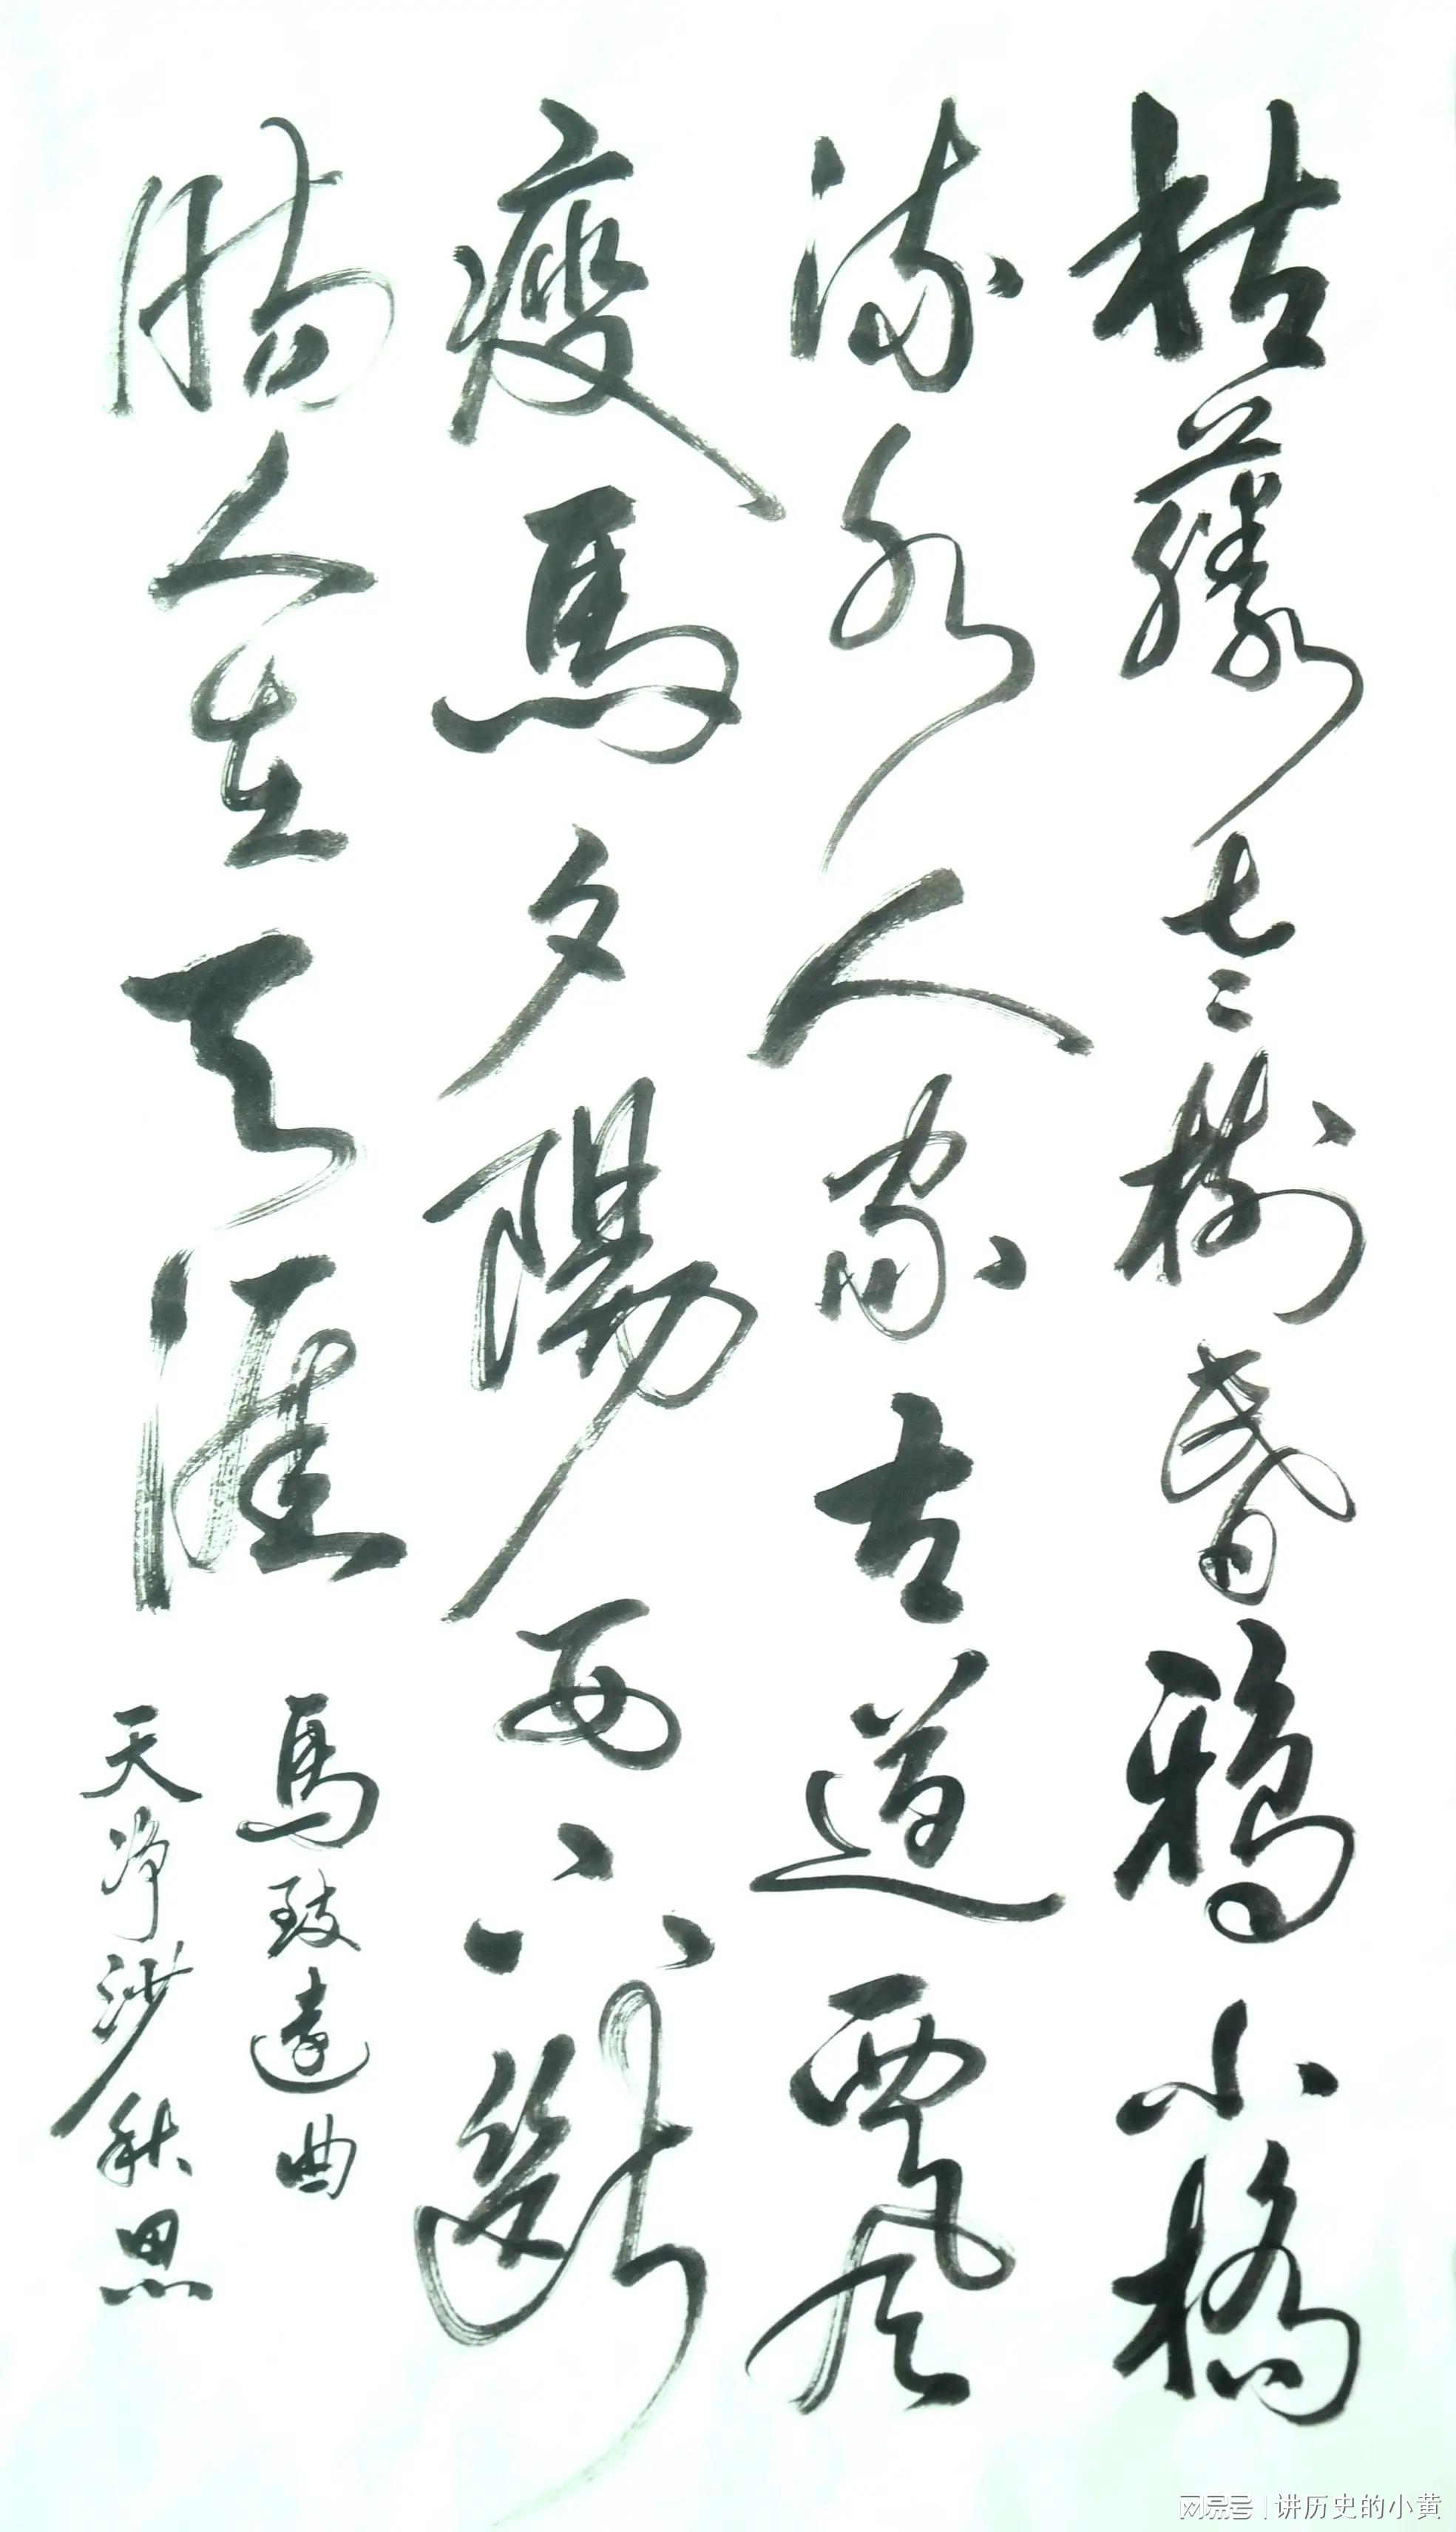 枯藤老樹昏鴉小橋
流水人家古道西風
瘦馬夕陽西下斷
腸人在天涯
馬致遠曲
天净沙秋思
网易号 | 讲历史的小黄